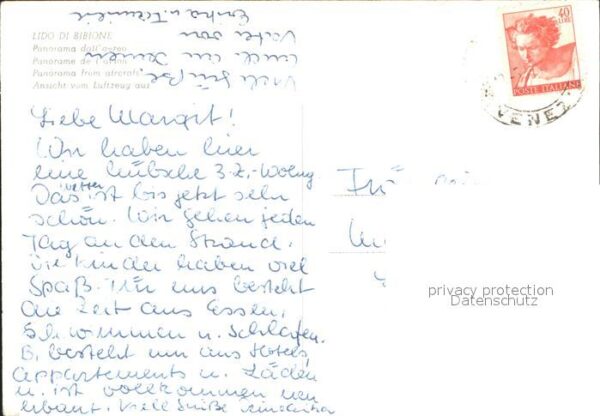 LIDO DI BIBIONE
Panorama dall'aereo
Panorama de l'avion
Panorama from atrerafs
Ansicht vom Luftzeug aus
40
LIRE
POSTE ITALIANE
VENEZ
Liebe Margit!
Wir haben hier
eine hübsche 3-Z.-Wohng
Das Wetter ist bis jetzt sehr
schön. Wir gehen jeden
Tag an den Strand.
Die Kinder haben viel
Spaß. Für uns besteht
die Zeit aus Essen,
Schwimmen u. Schlafen.
B. besteht nur aus Hotels,
Appartements u. Läden
u. ist vollkommen neu
erbaut. Viele Grüße
Viele Grüße
auch an Deinen
Vater von
Erika u. Familie
privacy protection
Datenschutz